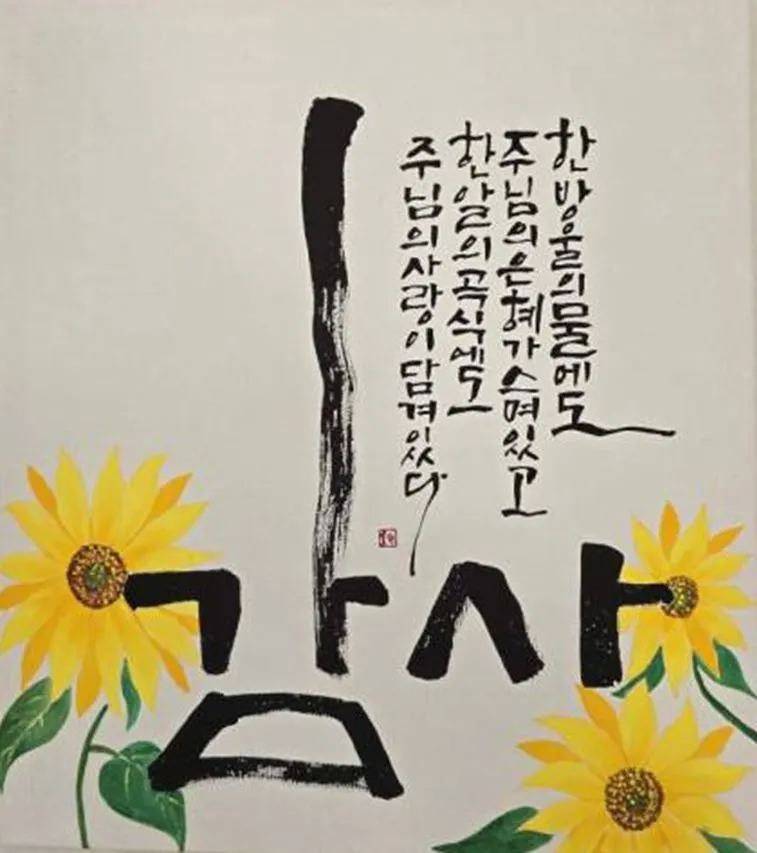 한 방울의 물에도
주님의 은혜가 스며있고
한 알의 곡식에도
주님의 사랑이 담겨있다
감사